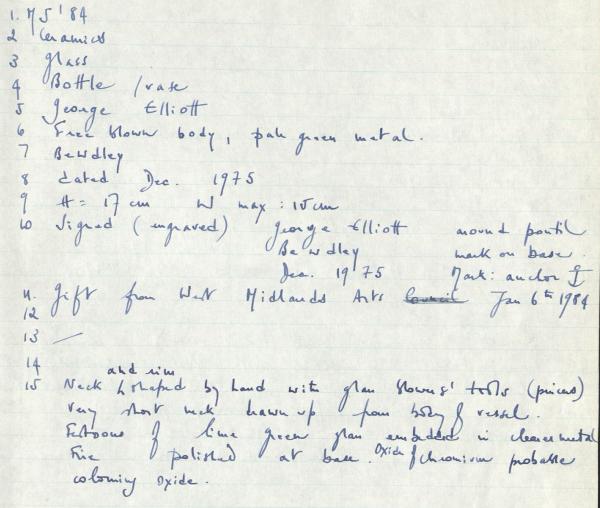 1. M5'84
2 Ceramics
3 glass
4 Bottle / vase
5 George Elliott
6 Free blown body, pale green metal.
7 Bewdley
8 dated Dec. 1975
9 H = 17 cm W max : 15 cm
10 Signed (engraved) George Elliott around pontil
Bewdley mark on base.
Dec. 1975 Mark: anchor
11. Gift from West Midlands Arts Council Jan 6th 1984
12
13 —
14
and rim
15 Neck shaped by hand with glass blowers' tools (pincers)
Very short neck drawn up from body of vessel.
Festoons of lime green glass embedded in clearer metal
Fire polished at base. Oxide of chromium probable
colouring oxide.